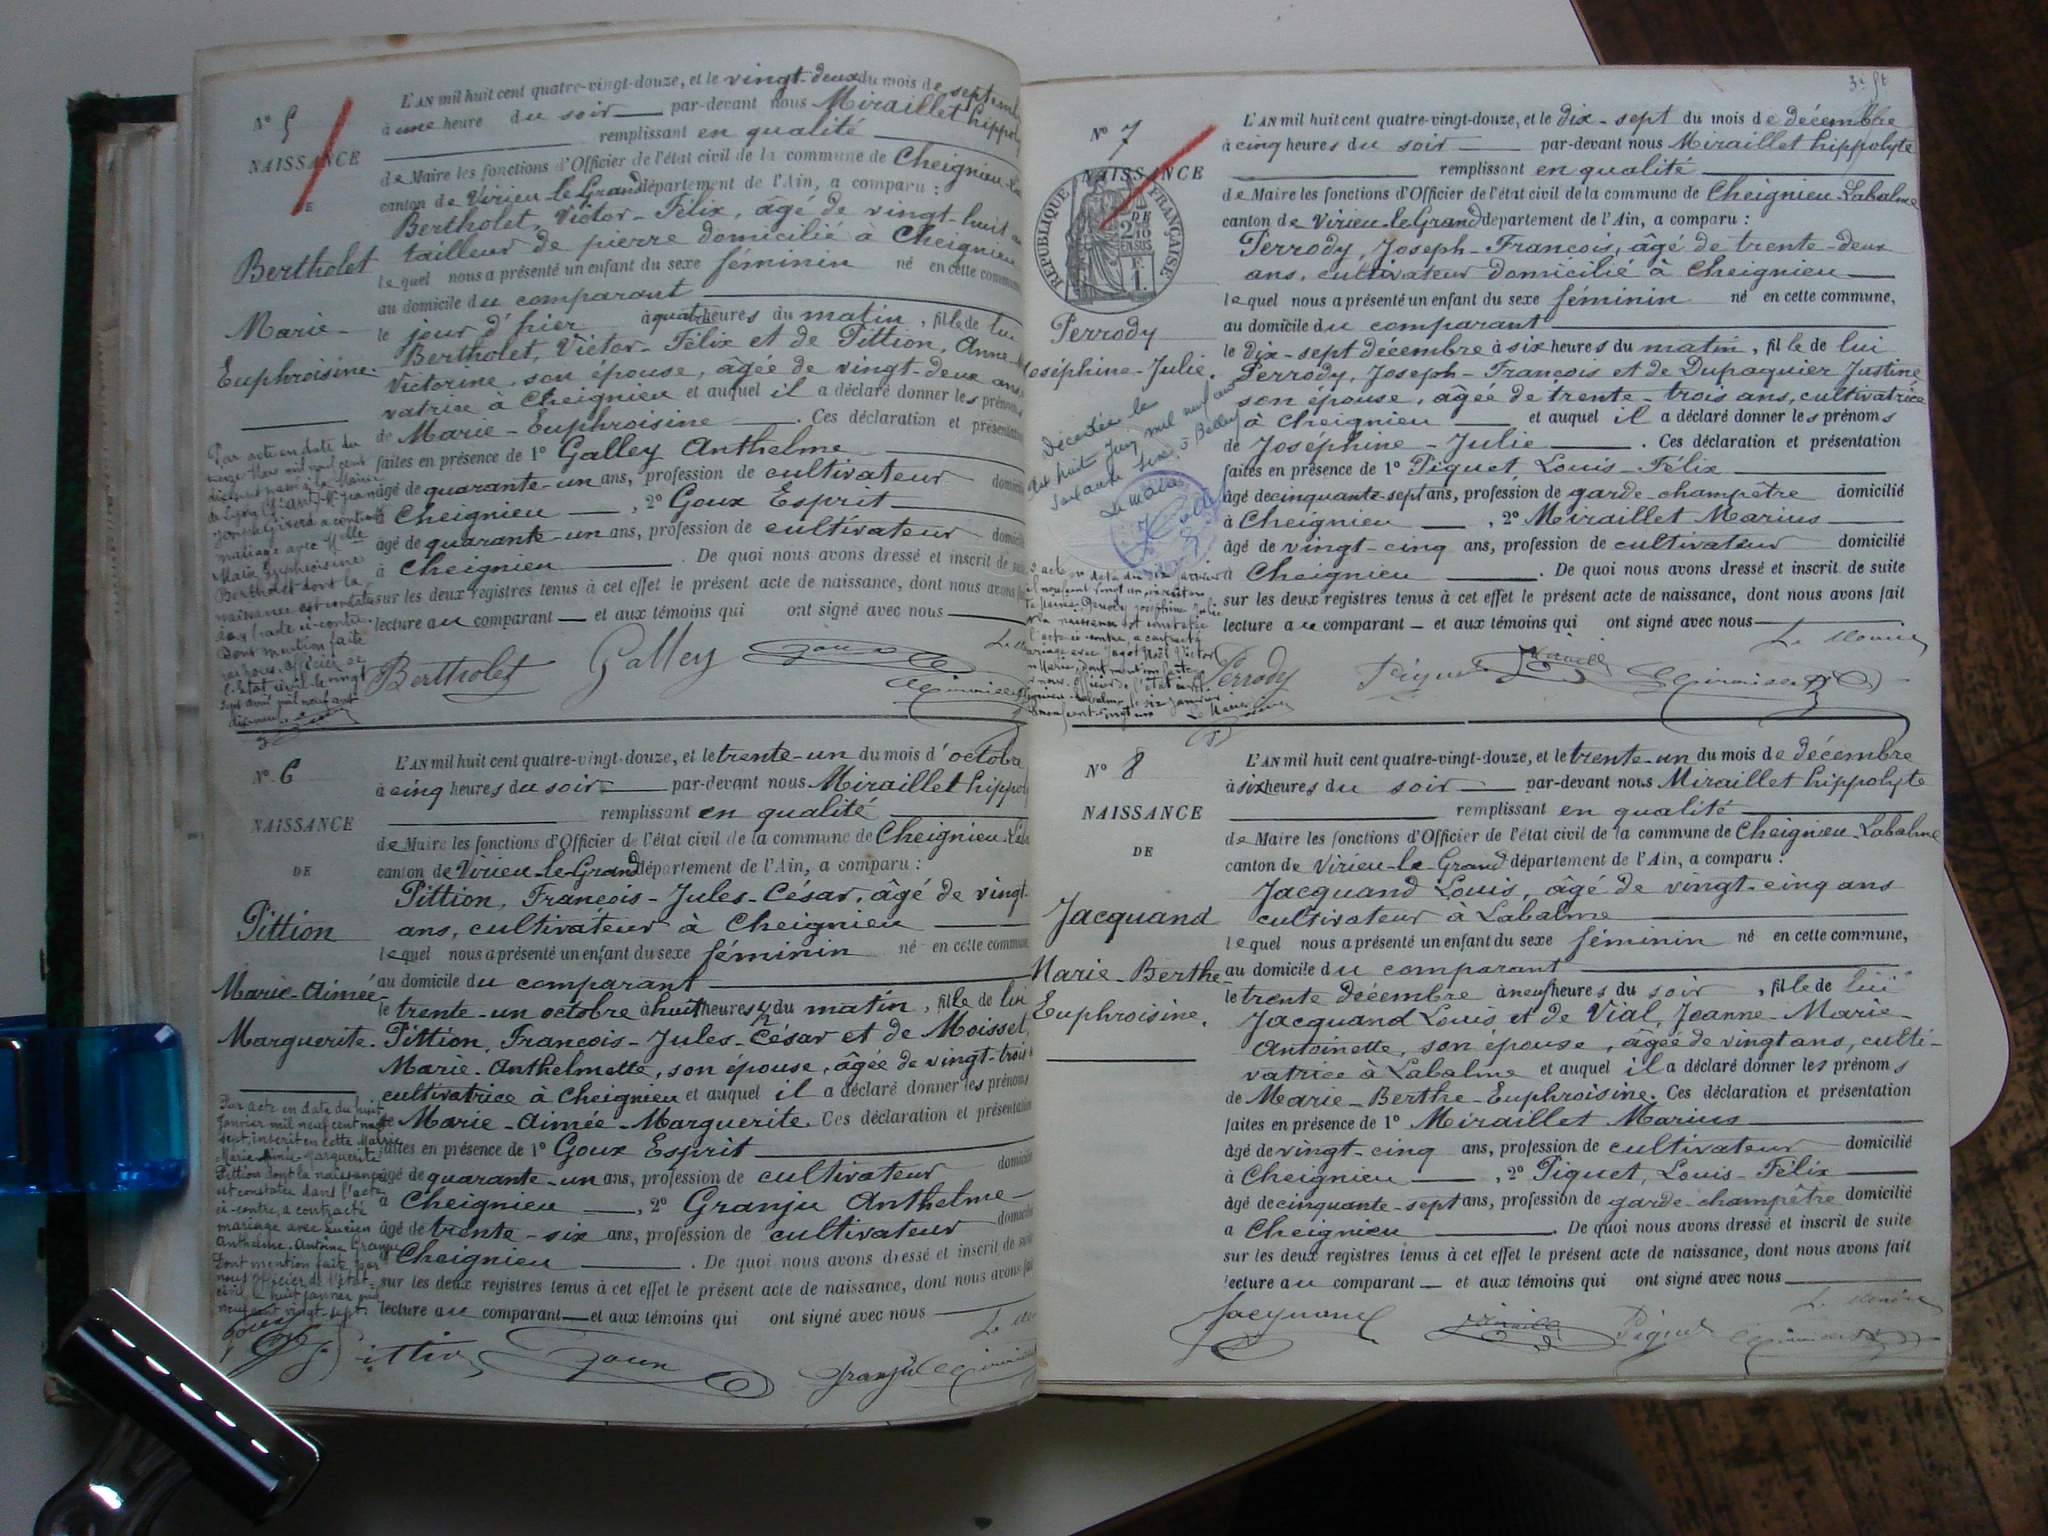 N° 5
NAISSANCE
DE
Bertholet
Marie-
Euphroisine.
L'AN mil huit cent quatre-vingt-douze, et le vingt-deux du mois de septemb
à une heure du soir par-devant nous Miraillet hippol
remplissant en qualité
de Maire les fonctions d'Officier de l'état civil de la commune de Cheignieu-La
canton de Virieu-le-Grand département de l'Ain, a comparu :
Bertholet, Victor-Félix, âgé de vingt-huit
tailleur de pierre domicilié à Cheignieu
lequel nous a présenté un enfant du sexe féminin né en cette commune
au domicile du comparant
le jour d'hier à quatre heures du matin, fille de lui
Bertholet, Victor-Félix et de Pittion, Anne-
Victorine, son épouse, âgée de vingt-deux ans,
vatrice à Cheignieu et auquel il a déclaré donner les prénoms
de Marie-Euphroisine. Ces déclaration et présentation
faites en présence de 1° Galley Anthelme
âgé de quarante-un ans, profession de cultivateur domicilié
à Cheignieu, 2° Goux Esprit
âgé de quarante-un ans, profession de cultivateur domicilié
à Cheignieu. De quoi nous avons dressé et inscrit de suite
sur les deux registres tenus à cet effet le présent acte de naissance, dont nous avons fait
lecture au comparant et aux témoins qui ont signé avec nous
Par acte en date du
mil neuf cent
passé à la Mairie
de Lyon
a contracté
mariage avec Melle
Marie Euphroisine
Bertholet dont la
naissance est constatée
dans l'acte ci-contre.
Dont mention faite
par nous, Officier de
l'Etat civil le vingt
sept avril mil neuf cent
Bertholet Galley Goux
N° 6
NAISSANCE
DE
Pittion
Marie-Aimée
Marguerite.
L'AN mil huit cent quatre-vingt-douze, et le trente-un du mois d'octobre
à cinq heures du soir par-devant nous Miraillet hippol
remplissant en qualité
de Maire les fonctions d'Officier de l'état civil de la commune de Cheignieu-Laba
canton de Virieu-le-Grand département de l'Ain, a comparu :
Pittion, François-Jules-César, âgé de vingt-
ans, cultivateur à Cheignieu
lequel nous a présenté un enfant du sexe féminin né en cette commune
au domicile du comparant
le trente-un octobre à huit heures ½ du matin, fille de lui
Pittion, François-Jules-César et de Moisset,
Marie-Anthelmette, son épouse, âgée de vingt-trois
cultivatrice à Cheignieu et auquel il a déclaré donner les prénoms
de Marie-Aimée-Marguerite. Ces déclaration et présentation
faites en présence de 1° Goux Esprit
âgé de quarante-un ans, profession de cultivateur domicilié
à Cheignieu, 2° Granju Anthelme
âgé de trente-six ans, profession de cultivateur domicilié
Cheignieu. De quoi nous avons dressé et inscrit de suite
sur les deux registres tenus à cet effet le présent acte de naissance, dont nous avons fait
lecture au comparant et aux témoins qui ont signé avec nous
Par acte en date du huit
Janvier mil neuf cent vingt
sept, inscrit en cette Mairie
Marie Aimée Marguerite
Pittion dont la naissance
est constatée dans l'acte
ci-contre, a contracté
mariage avec Lucien
Anthelme-Antoine Granju
Dont mention faite par
nous officier de l'état
civil, le huit janvier mil
neuf cent vingt-sept.
Pittion Goux Granju
3e ft
N° 7
NAISSANCE
RÉPUBLIQUE FRANÇAISE
DE
2/10
EN SUS
F
1.
Perrody
Joséphine-Julie.
L'AN mil huit cent quatre-vingt-douze, et le dix-sept du mois de décembre
à cinq heures du soir par-devant nous Miraillet hippolyte
remplissant en qualité
de Maire les fonctions d'Officier de l'état civil de la commune de Cheignieu-Labalme
canton de Virieu-le-Grand département de l'Ain, a comparu :
Perrody, Joseph-François, âgé de trente-deux
ans, cultivateur domicilié à Cheignieu
lequel nous a présenté un enfant du sexe féminin né en cette commune,
au domicile du comparant
le dix-sept décembre à six heures du matin, fille de lui
Perrody, Joseph-François et de Dupaquier Justine
son épouse, âgée de trente-trois ans, cultivatrice
à Cheignieu et auquel il a déclaré donner les prénoms
de Joséphine-Julie. Ces déclaration et présentation
faites en présence de 1° Piquet Louis-Félix
âgé de cinquante-sept ans, profession de garde-champêtre domicilié
à Cheignieu, 2° Miraillet Marius
âgé de vingt-cinq ans, profession de cultivateur domicilié
à Cheignieu. De quoi nous avons dressé et inscrit de suite
sur les deux registres tenus à cet effet le présent acte de naissance, dont nous avons fait
lecture au comparant et aux témoins qui ont signé avec nous
Le Maire
Décédée le
huit Juin mil neuf cent
soixante six, à Belley
Le Maire
acte en date du six janvier
mil neuf cent vingt un,
Perrody Joséphine Julie
dont la naissance est constatée
l'acte ci-contre, a contracté
mariage avec Jagot Noël Victor
Marie, dont mention faite
par nous Officier de l'état civil
Cheignieu-Labalme, le six janvier
mil neuf cent vingt un
Le Maire
Perrody Piquet Miraillet
N° 8
NAISSANCE
DE
Jacquand
Marie-Berthe-
Euphroisine.
L'AN mil huit cent quatre-vingt-douze, et le trente-un du mois de décembre
à six heures du soir par-devant nous Miraillet hippolyte
remplissant en qualité
de Maire les fonctions d'Officier de l'état civil de la commune de Cheignieu-Labalme
canton de Virieu-le-Grand département de l'Ain, a comparu :
Jacquand Louis, âgé de vingt-cinq ans
cultivateur à Labalme
lequel nous a présenté un enfant du sexe féminin né en cette commune,
au domicile du comparant
le trente décembre à neuf heures du soir, fille de lui
Jacquand Louis et de Vial, Jeanne-Marie-
Antoinette, son épouse, âgée de vingt ans, culti-
vatrice à Labalme et auquel il a déclaré donner les prénoms
de Marie-Berthe-Euphroisine. Ces déclaration et présentation
faites en présence de 1° Miraillet Marius
âgé de vingt-cinq ans, profession de cultivateur domicilié
à Cheignieu, 2° Piquet, Louis-Félix
âgé de cinquante-sept ans, profession de garde-champêtre domicilié
à Cheignieu. De quoi nous avons dressé et inscrit de suite
sur les deux registres tenus à cet effet le présent acte de naissance, dont nous avons fait
lecture au comparant et aux témoins qui ont signé avec nous
Le Maire
Jacquand Miraillet Piquet